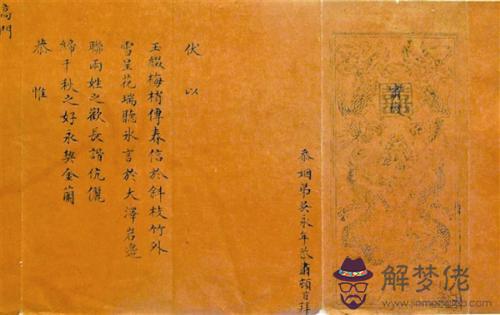 忝姻弟吳永年恭肅頓首拜
伏以
玉綴梅梢傳春信於斜枝竹外
雪呈花瑞聽氷言於大澤岩邊
聯兩姓之歡長諧伉儷
締千秋之好永契金蘭
恭惟
高門
解梦佬